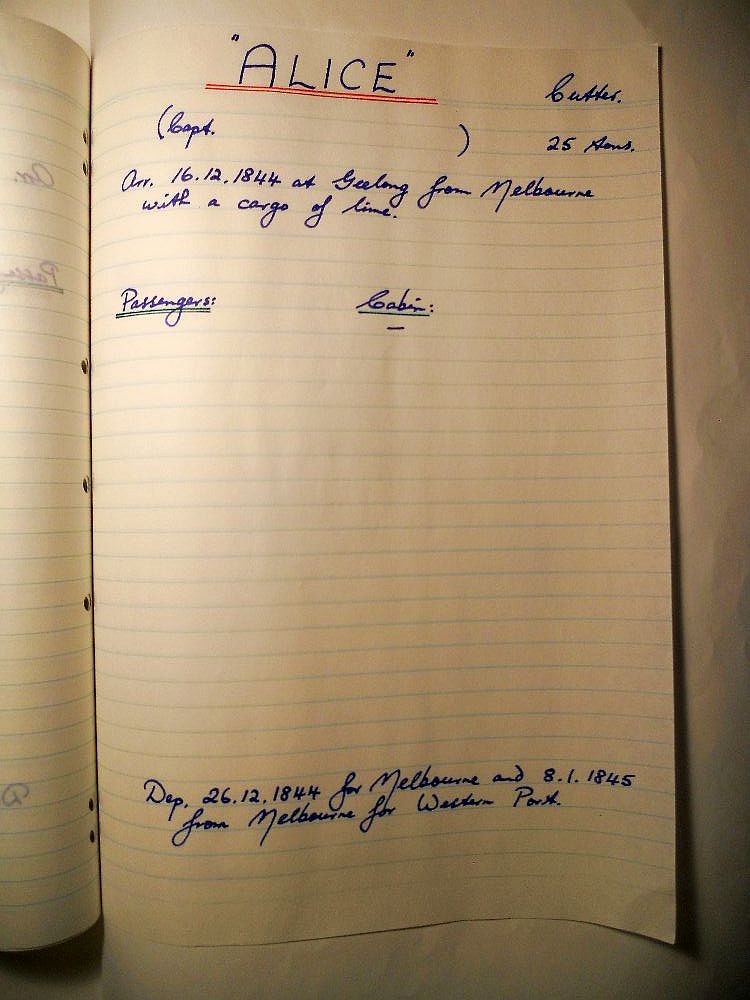 "ALICE"
Cutter.
(Capt. )
25 tons.
Arr. 16.12.1844 at Geelong from Melbourne
with a cargo of lime.
Passengers: Cabin:
—
Dep. 26.12.1844 for Melbourne and 8.1.1845
from Melbourne for Western Port.